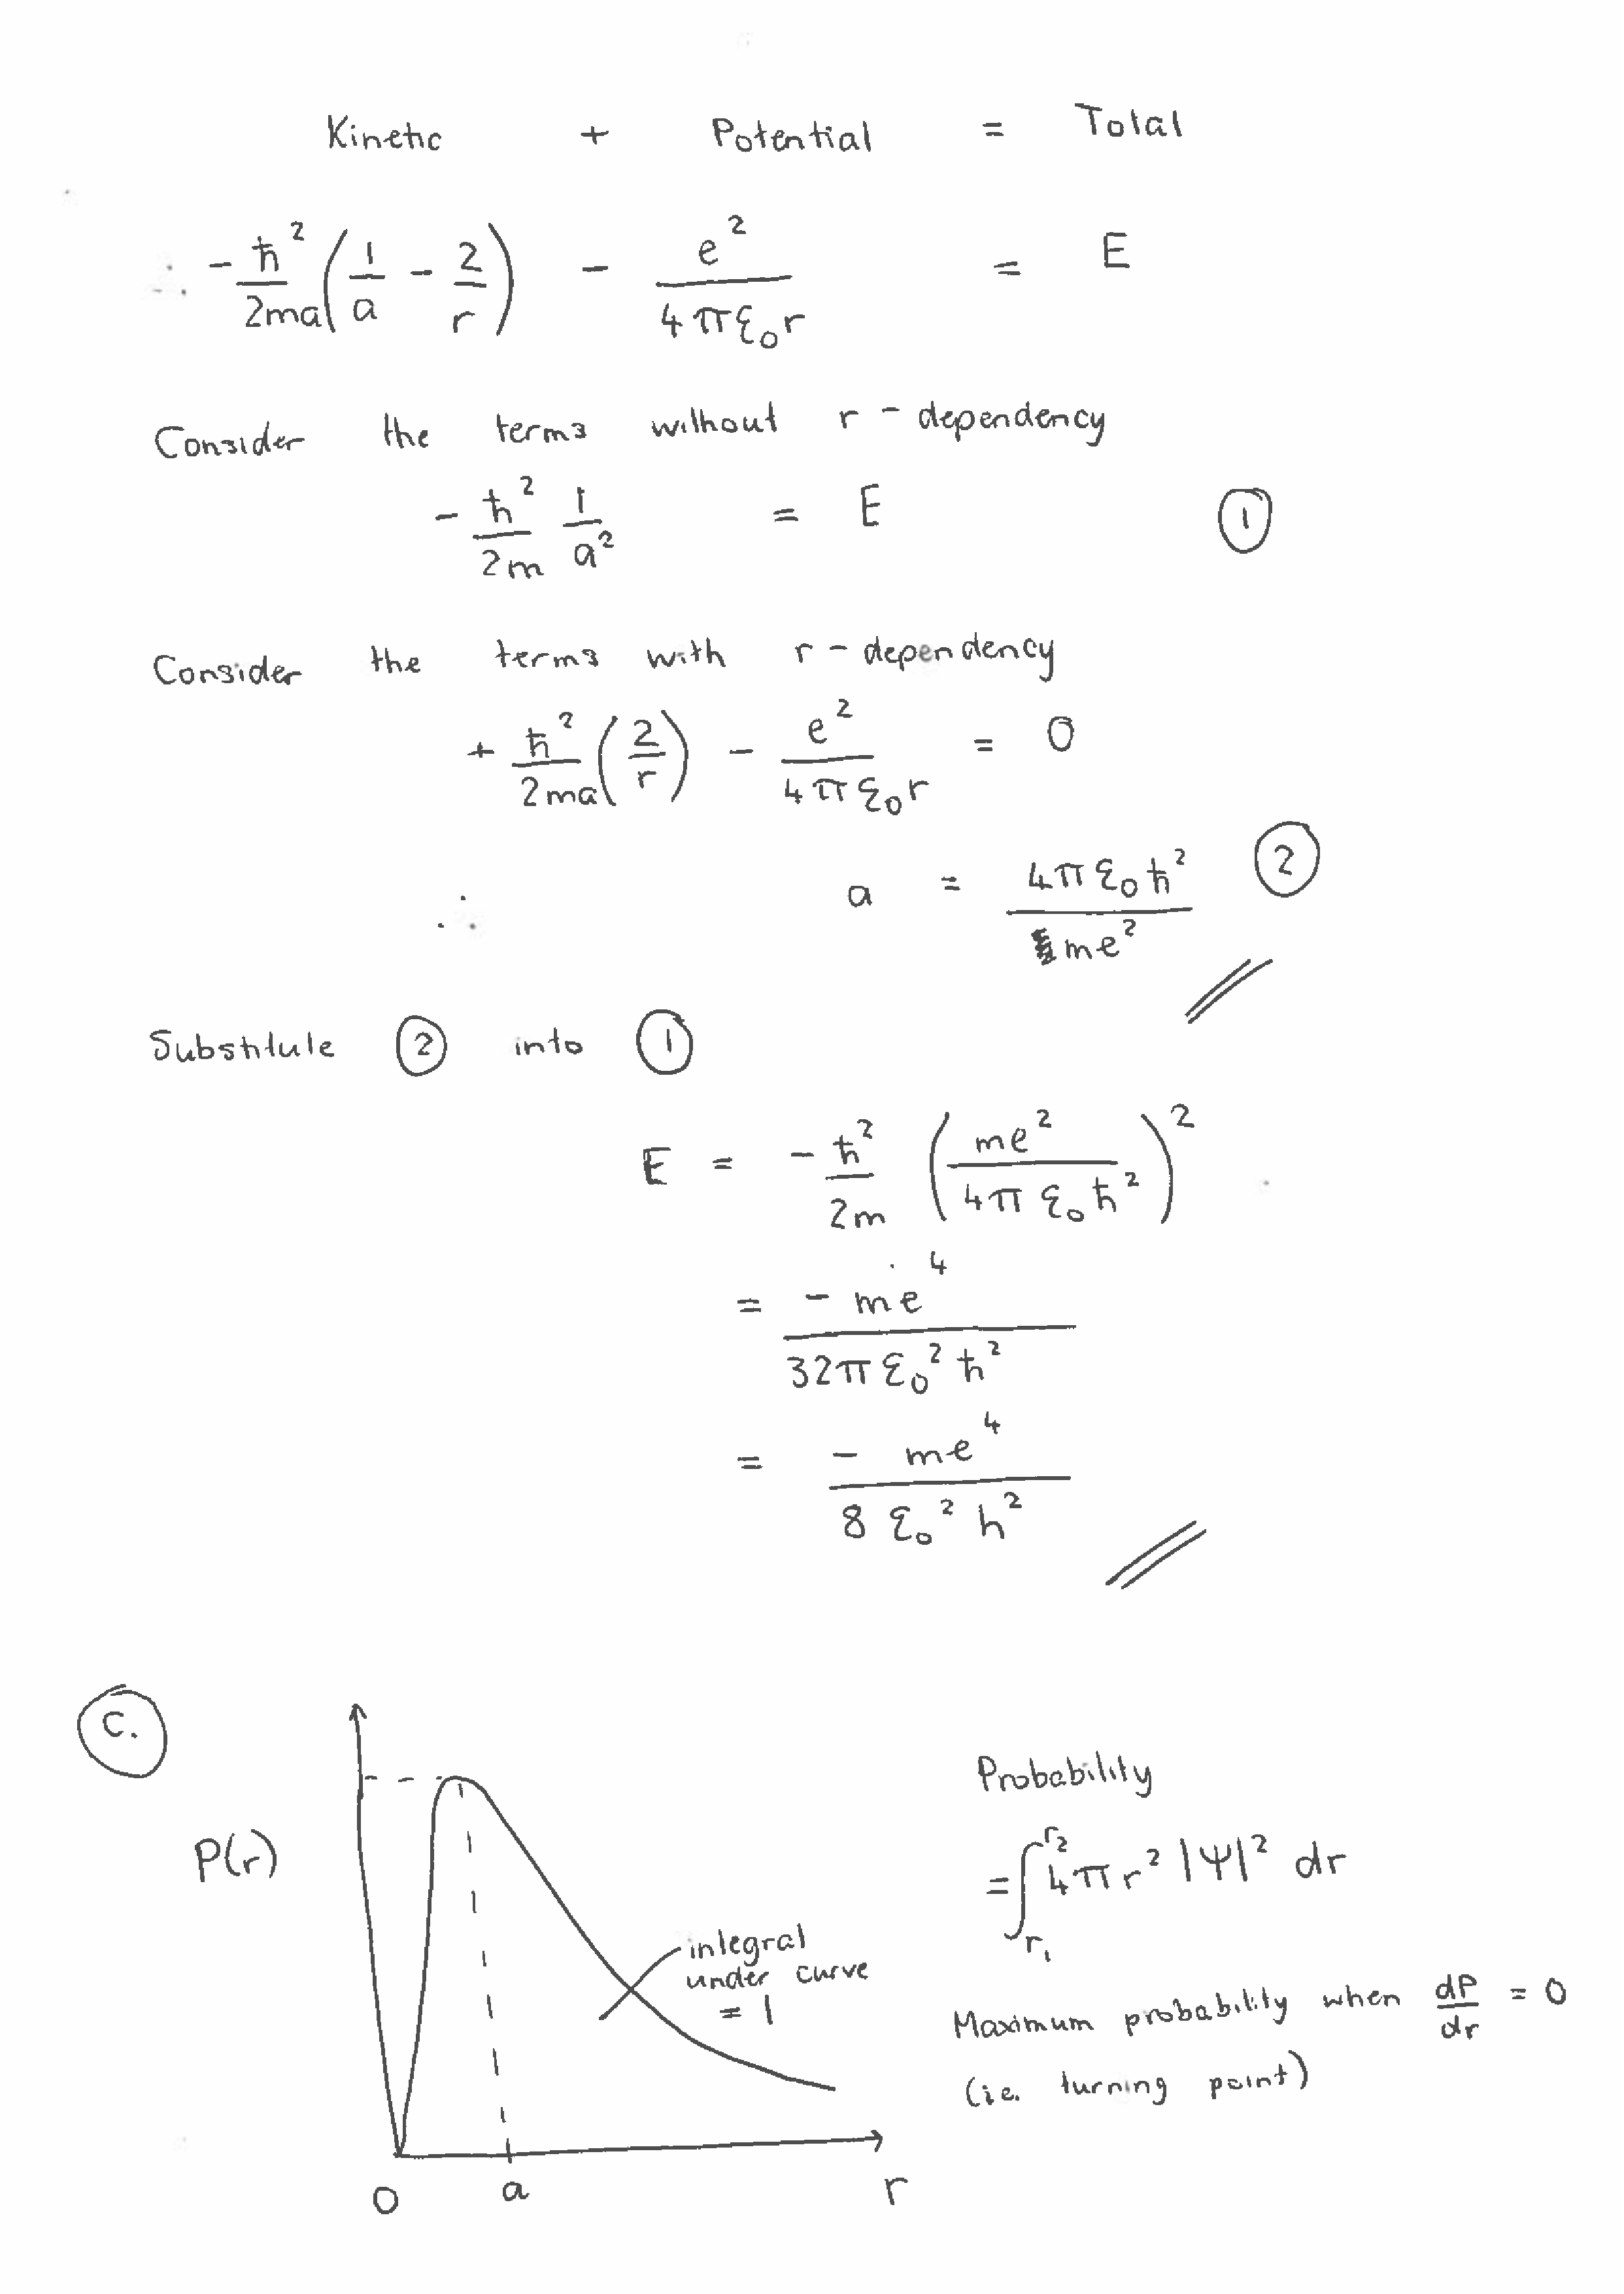 Kinetic + Potential = Total
∴ -ħ²/2ma (1/a - 2/r) - e²/4πε₀r = E
Consider the terms without r-dependency
-ħ²/2m 1/a² = E ①
Consider the terms with r-dependency
+ ħ²/2ma (2/r) - e²/4πε₀r = 0
∴ a = 4πε₀ħ²/me² ②
Substitute ② into ①
E = -ħ²/2m (me²/4πε₀ħ²)²
= -me⁴/32πε₀²ħ²
= -me⁴/8ε₀²h²
C.
P(r)
integral
under curve
= 1
0 a r
Probability
= ∫_{r₁}^{r₂} 4πr² |Ψ|² dr
Maximum probability when dP/dr = 0
(ie. turning point)